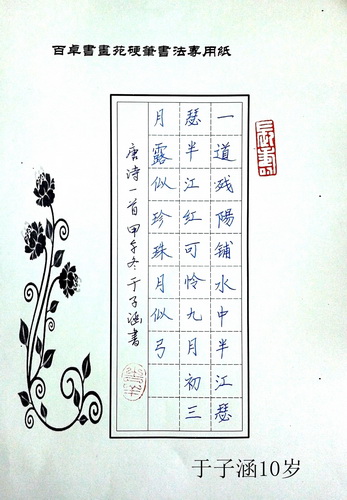 百卓書畫苑硬筆書法專用紙
一道残陽铺水中半江瑟
瑟半江紅可怜九月初三
月露似珍珠月似弓
唐诗一首甲午冬于子涵書
于子涵10岁